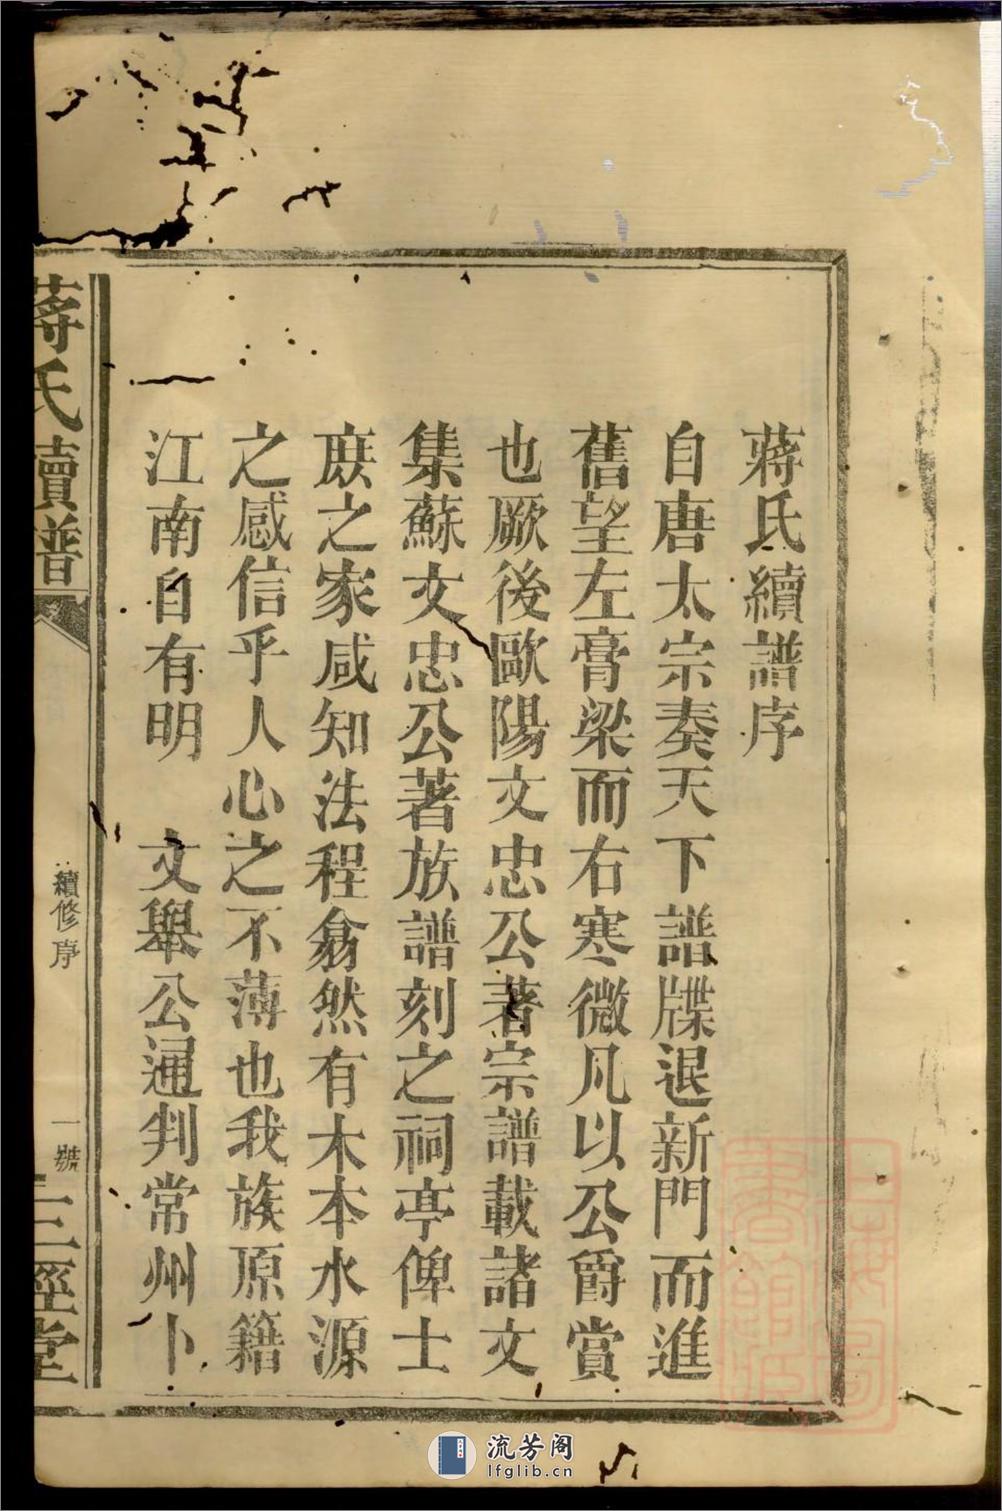 蔣氏續譜序
自唐太宗奏天下譜牒退新門而進
舊望左膏梁而右寒微凡以公爵賞
也厥後歐陽文忠公著宗譜載諸文
集蘇文忠公著族譜刻之祠亭俾士
庶之家咸知法程翕然有木本水源
之感信乎人心之不薄也我族原籍
江南自有明　文舉公通判常州卜
蔣氏續譜
續修序
一號
三徑堂
流芳阁
lfglib.cn